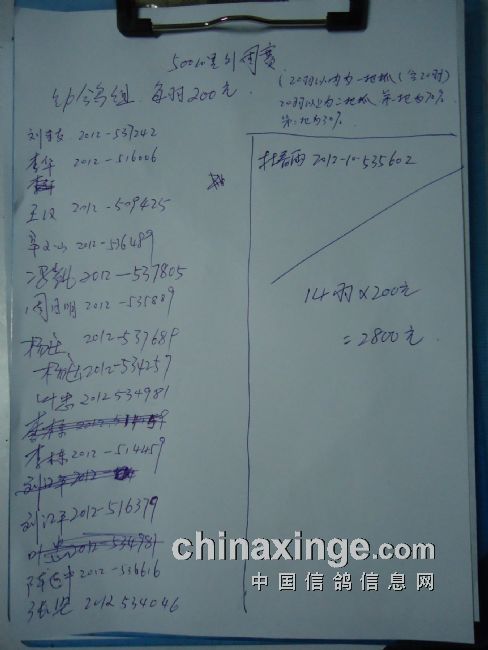 500公里外围赛
幼鸽组 每羽200元.
(20羽以内为一地抓(含20羽)
20羽以上为二地抓 第一地为70%
第二地为30%
2012-537242
李华 2012-516006
王 2012-509425
2012-536489
2012-537805
周月明 2012-535889
杨 2012-537689
杨 2012-534257
叶忠 2012 534981
李栋 2012-514459
刘江平 2012-516379
叶忠 2012-534981
2012-536616
张 2012 534046
杜春雨 2012-10-535602
14羽×200元
=2800元.
chinaxinge.com
中国信鸽信息网